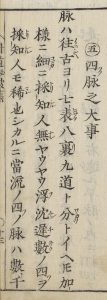 五 四脉之大事
脉ハ往古ヨリ七表八裏九道ト分トイヘ𪜈加
樣ニ細ニ捜知人無ヤウヤウ浮沈遲數ノ四ヲ
捜知人モ稀也シカルニ當流ノ四ノ脉ハ數千